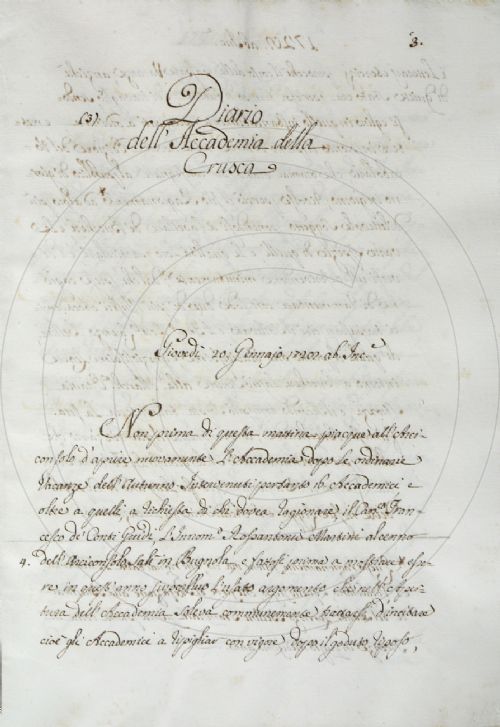 3.
(3)
Diario
dell'Accademia della
Crusca
Giovedì 20. Gennajo 1720. ab Inc.e
Non prima di questa mattina piacque all'Arci-
consolo d'aprire nuovamente l'Accademia dopo le ordinarie
Vacanze dell'Autunno. Intervenuti pertanto 16 Accademici e
oltre a quelli, a richiesta di chi dovea ragionare il Can.co Fran-
cesco de' Conti Guidi, l'Innom.o Rosantonio Martini al cenno
4. dell'Arciconsolo salì in Bugnola, e fattosi prima a mostrare esse-
re in quest'anno superfluo l'usato argomento, che nell'Aper-
tura dell'Accademia soleva communemente trattarsi d'incitare
cioè gli Accademici a ripigliar con vigore, dopo il goduto riposo,